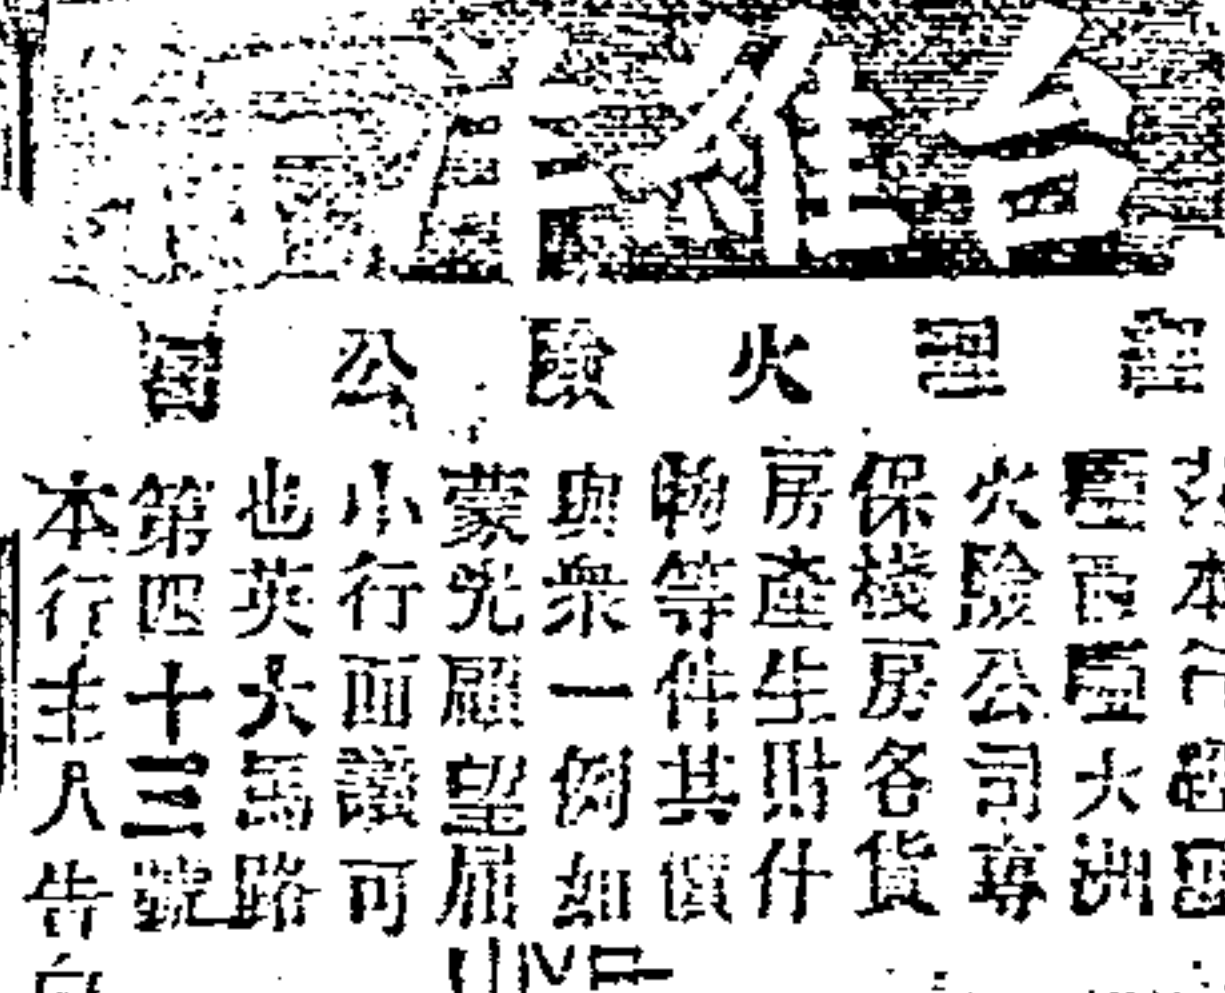 台維洋行
理火險公
茲本行
大洲
火險公司專
保棧房各貨
房產生財什
物等件其價
與衆一例如
蒙光顧望届
小行面議可
也英大馬路
第四十三號
本行主人告白